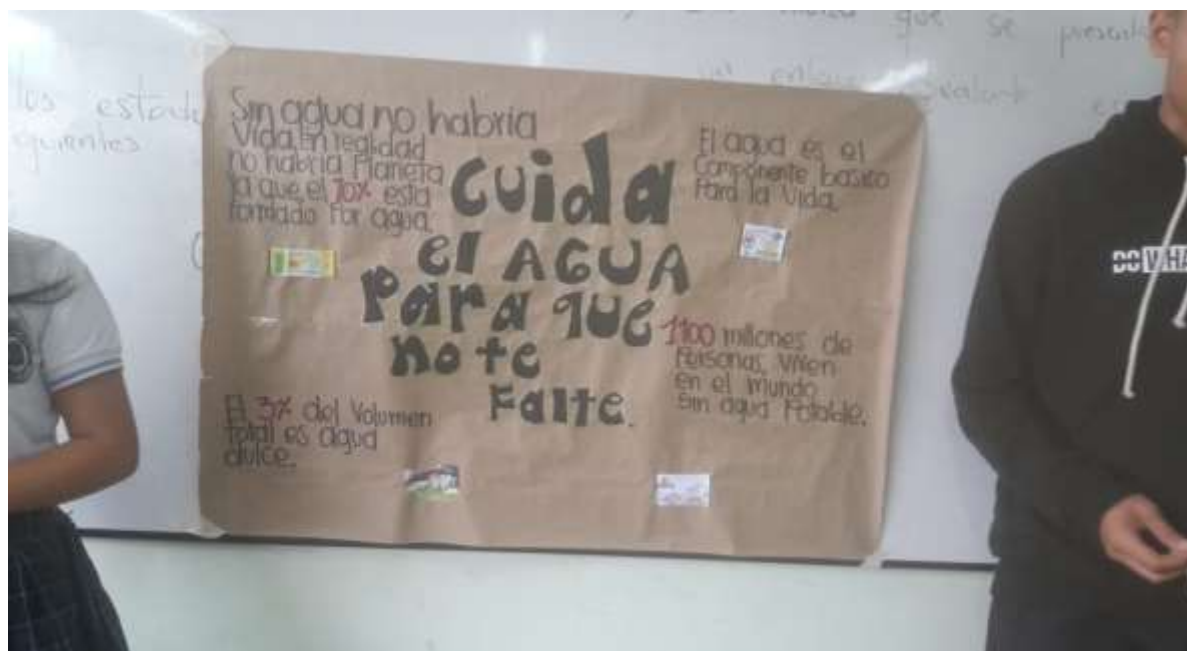 que se
los estad
Sin agua no habria
Vida, En realidad
no habria Planeta
ya que, el 70% esta
formado Por agua.
cuida
el AGUA
Para que
no te
Falte.
El agua es el
Componente basico
Para la Vida.
1100 millones de
Personas, Viven
en el mundo
Sin agua Potable.
El 3% del Volumen
total es agua
dulce.
DO WHA